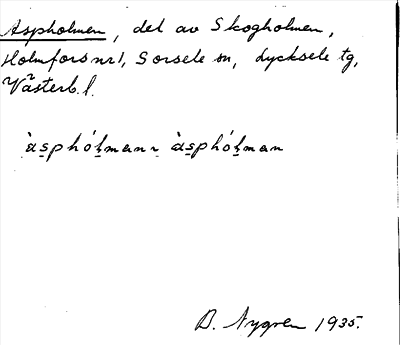 Aspholmen, del av Skogholmen,
Holmfors nr 1, Sorsele sn, Lycksele tg,
Västerb. l.
àsphóḻmanꝛ àsphóḻman
B. Nygren 1935.